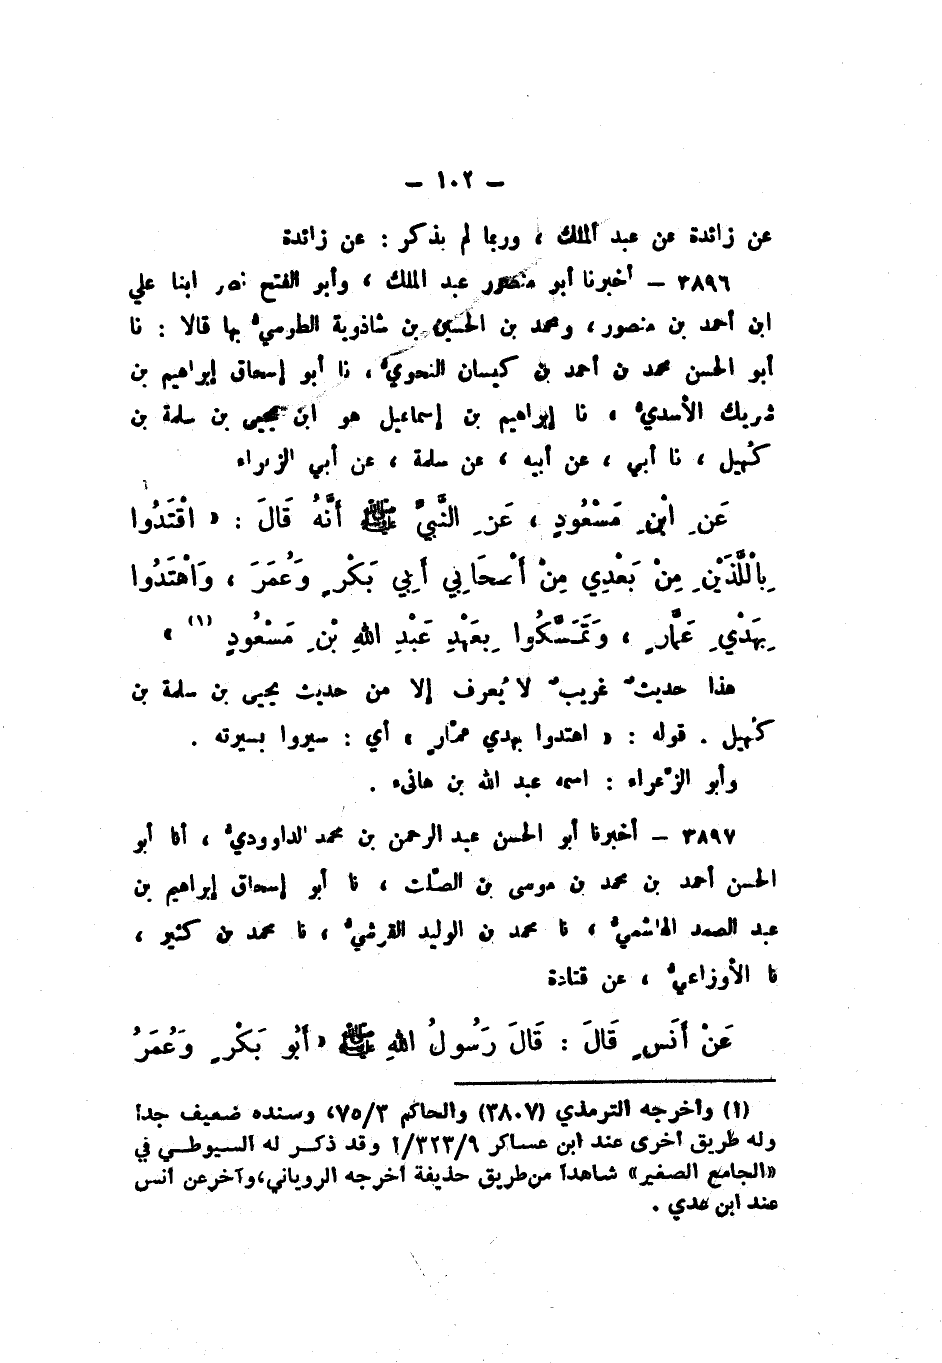 – ١٠٢ –
عن زائدة عن عبد الملك ، وربما لم يذكر : عن زائدة
٣٨٩٦ – أخبرنا أبو منصور عبد الملك ، وأبو الفتح نصر ابنا علي
ابن أحمد بن منصور ، ومحمد بن الحسين بن شاذوية الطوسيُّ بها قالا : نا
أبو الحسن محمد بن أحمد بن كيسان النحويُّ ، نا أبو إسحاق إبراهيم بن
شريك الأسديُّ ، نا إبراهيم بن إسماعيل هو ابن يحيى بن سلمة بن
كُهيل ، نا أبي ، عن أبيه ، عن سلمة ، عن أبي الزعراء
عَنِ ابْنِ مَسْعُودٍ ، عَنِ النَّبِيِّ ﷺ أَنَّهُ قَالَ : « اقْتَدُوا
بِاللَّذَيْنِ مِنْ بَعْدِي مِنْ أَصْحَابِي أَبِي بَكْرٍ وَعُمَرَ ، وَاهْتَدُوا
بِهَدْيِ عَمَّارٍ ، وَتَمَسَّكُوا بِعَهْدِ عَبْدِ اللهِ بْنِ مَسْعُودٍ (١) »
هذا حديثٌ غريبٌ لا يُعرف إلا من حديث يحيى بن سلمة بن
كُهيل . قوله : « اهتدوا بهدي عمّارٍ » أي : سيروا بسيرته .
وأبو الزَّعراء : اسمه عبد الله بن هانىء .
٣٨٩٧ – أخبرنا أبو الحسن عبد الرحمن بن محمد الداووديُّ ، أنا أبو
الحسن أحمد بن محمد بن موسى بن الصّلت ، نا أبو إسحاق إبراهيم بن
عبد الصمد الهاشميُّ ، نا محمد بن الوليد القرشيُّ ، نا محمد بن كثير ،
نا الأوزاعيُّ ، عن قتادة
عَنْ أَنَسٍ قَالَ : قَالَ رَسُولُ اللهِ ﷺ « أَبُو بَكْرٍ وَعُمَرُ
(١) وأخرجه الترمذي (٣٨٠٧) والحاكم ٧٥/٣، وسنده ضعيف جداً
وله طريق أخرى عند ابن عساكر ١/٣٢٣/٩ وقد ذكر له السيوطي في
«الجامع الصغير» شاهداً من طريق حذيفة أخرجه الروياني، وآخر عن أنس
عند ابن عدي .